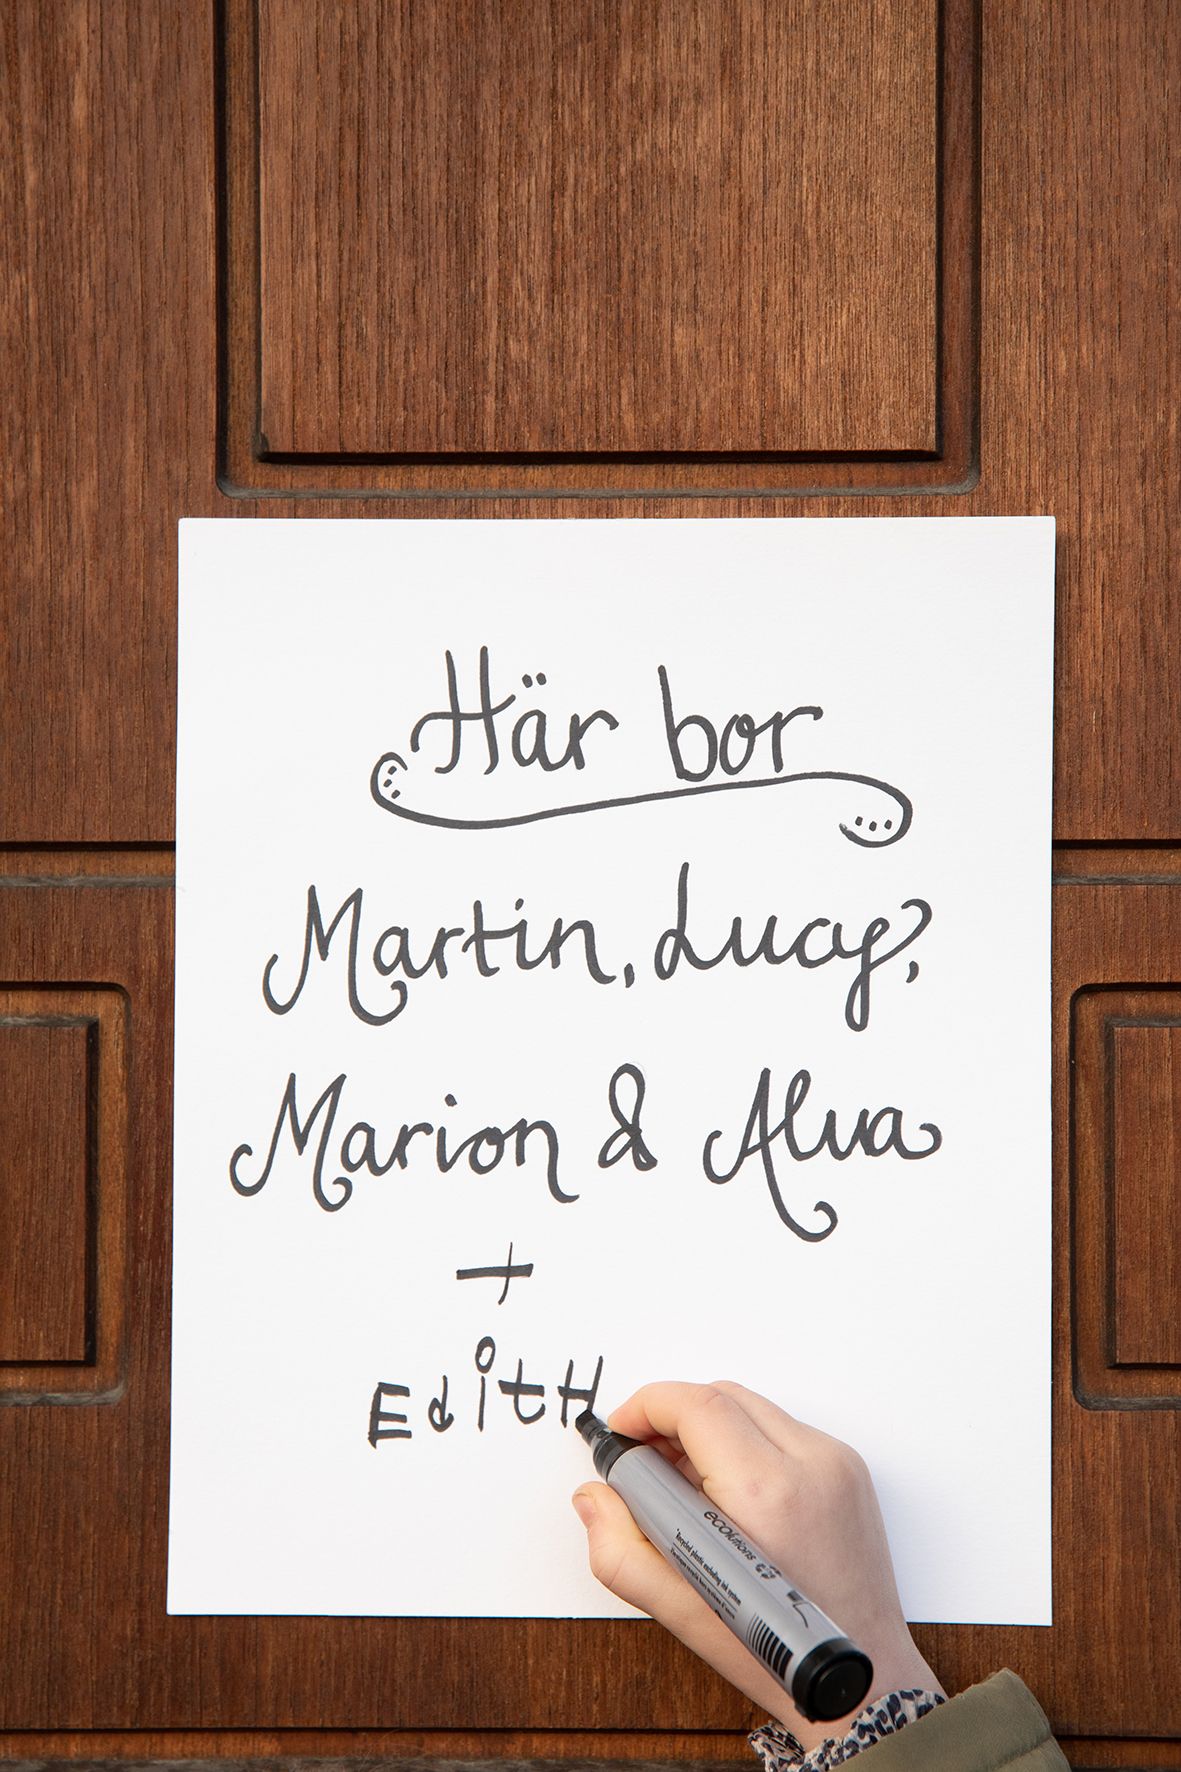 Här bor
Martin, Lucy,
Marion & Alva
+
EditH
ecolutions
Recycled plastic excluding ink system